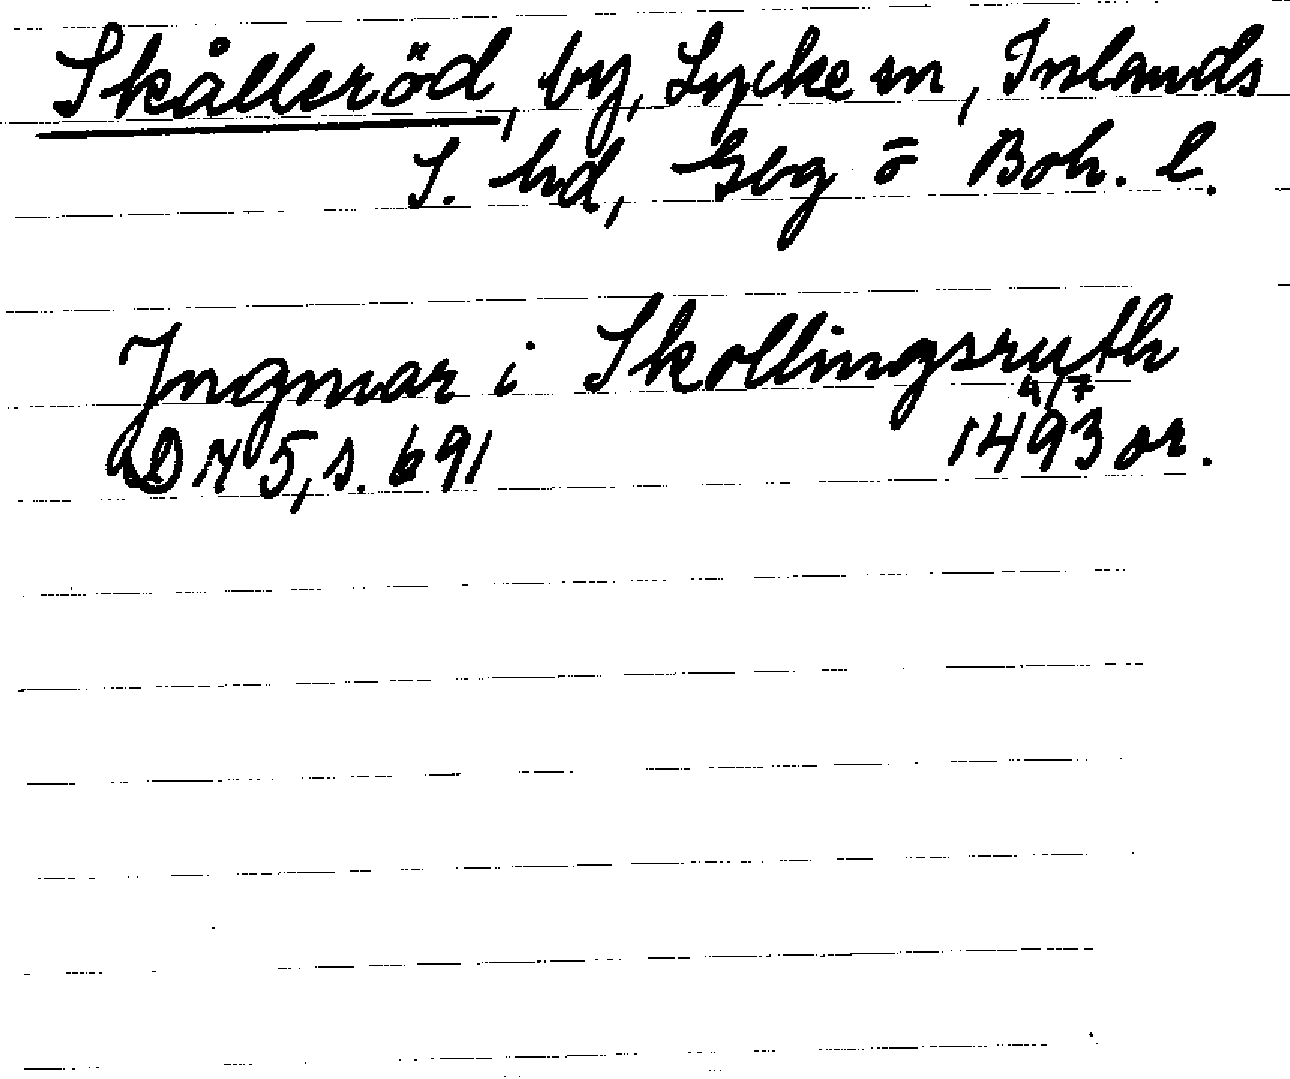 Skålleröd, by, Lycke sn, Inlands
S. hd, Gbg o Boh. l.
Ingmar i Skollingsruth
4/7
DN 5, s. 691 1493 or.